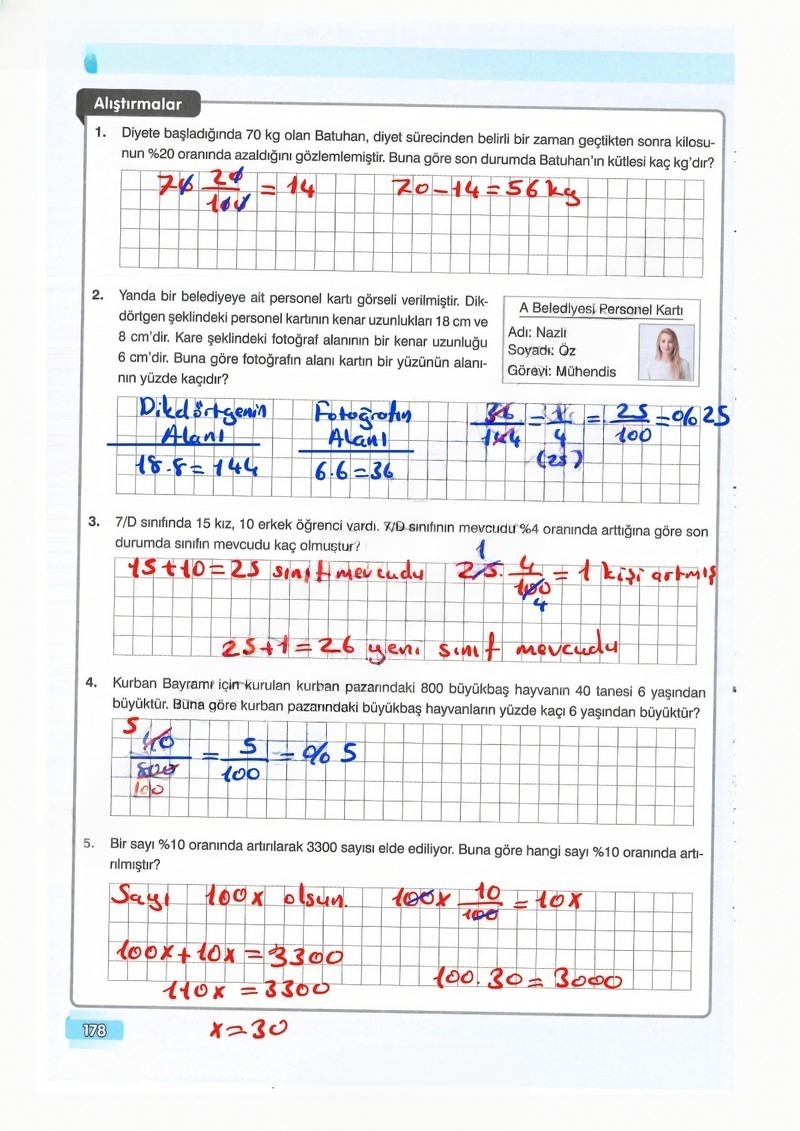 Alıştırmalar
1. Diyete başladığında 70 kg olan Batuhan, diyet sürecinden belirli bir zaman geçtikten sonra kilosu-
nun %20 oranında azaldığını gözlemlemiştir. Buna göre son durumda Batuhan'ın kütlesi kaç kg'dır?
70 20/100 = 14 70-14=56 kg
2. Yanda bir belediyeye ait personel kartı görseli verilmiştir. Dik-
dörtgen şeklindeki personel kartının kenar uzunlukları 18 cm ve
8 cm'dir. Kare şeklindeki fotoğraf alanının bir kenar uzunluğu
6 cm'dir. Buna göre fotoğrafın alanı kartın bir yüzünün alanı-
nın yüzde kaçıdır?
A Belediyesi Personel Kartı
Adı: Nazlı
Soyadı: Öz
Görevi: Mühendis
Dikdörtgenin
Alanı
18.8=144
Fotoğrafın
Alanı
6.6=36
36/144 = 1/4 = 25/100 = %25
(25)
3. 7/D sınıfında 15 kız, 10 erkek öğrenci vardı. 7/D sınıfının mevcudu %4 oranında arttığına göre son
durumda sınıfın mevcudu kaç olmuştur?
1
15+10=25 sınıf mevcudu 25. 4/100 = 1 kişi artmış
4
25+1=26 yeni sınıf mevcudu
4. Kurban Bayramı için kurulan kurban pazarındaki 800 büyükbaş hayvanın 40 tanesi 6 yaşından
büyüktür. Buna göre kurban pazarındaki büyükbaş hayvanların yüzde kaçı 6 yaşından büyüktür?
5
40/800 = 5/100 = %5
100
5. Bir sayı %10 oranında artırılarak 3300 sayısı elde ediliyor. Buna göre hangi sayı %10 oranında artı-
rılmıştır?
Sayı 100x olsun. 100x 10/100 = 10x
100x+10x=3300
110x=3300 100.30=3000
x=30
178